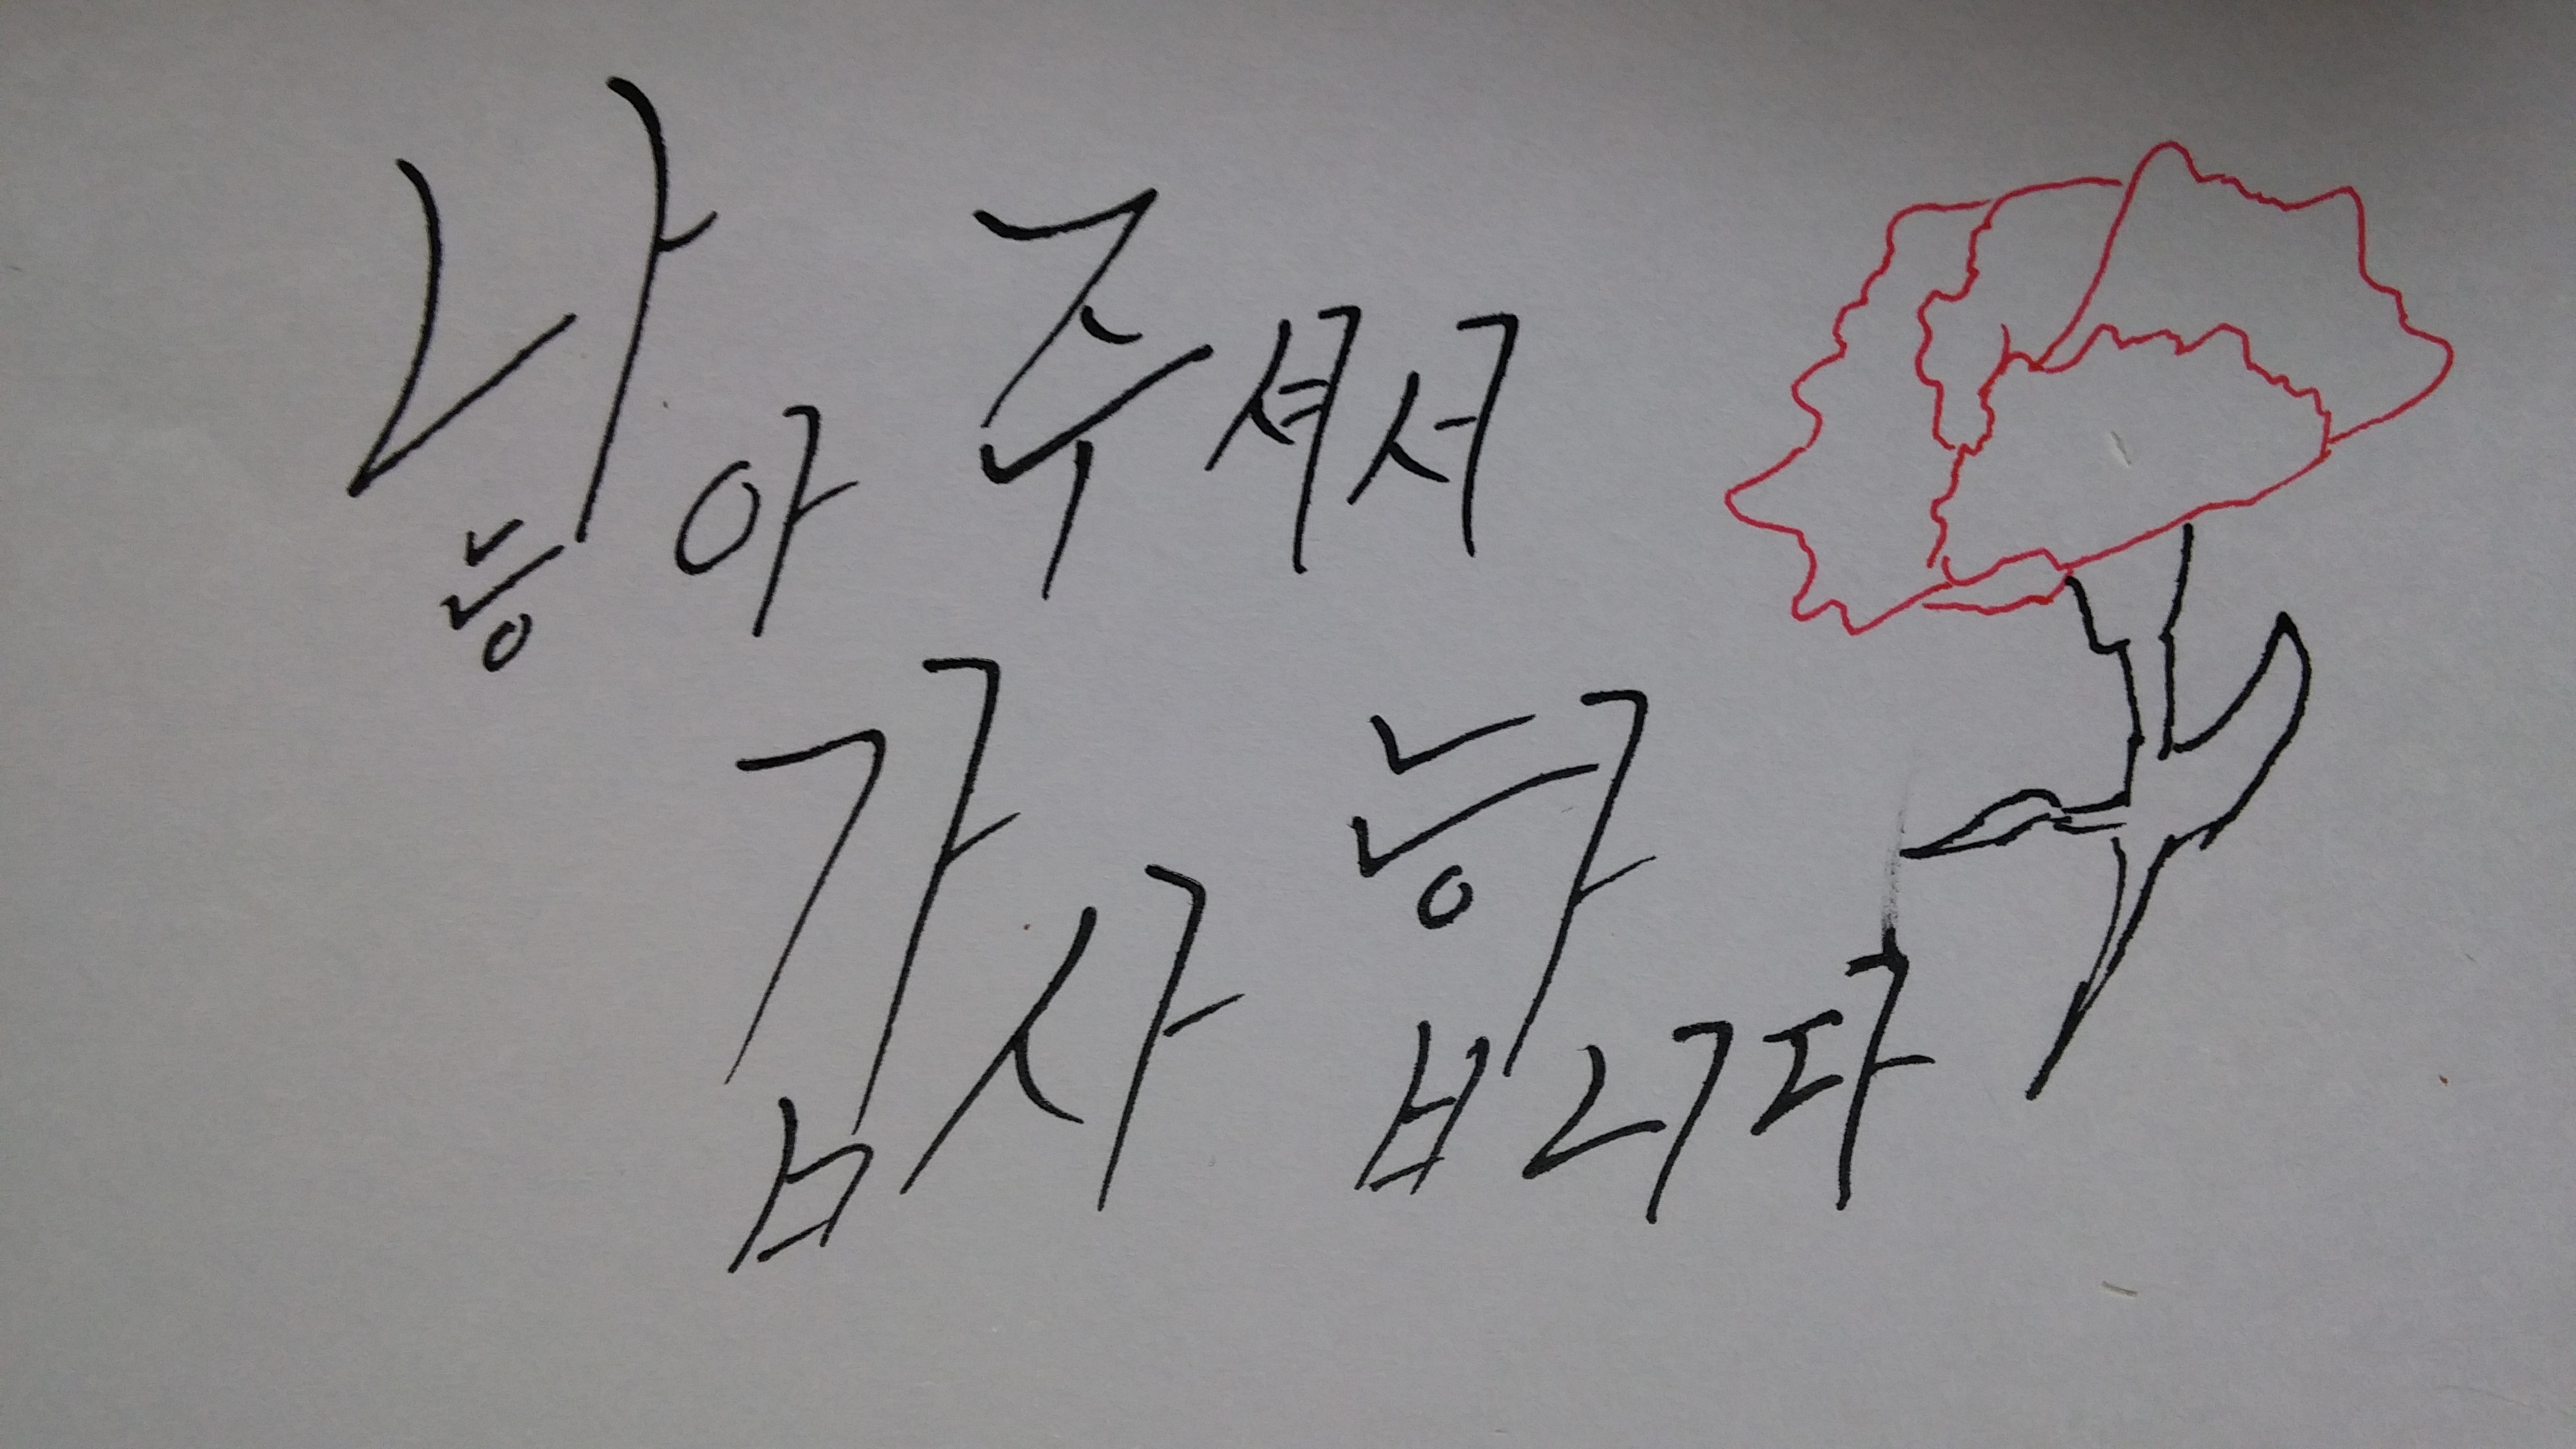 낳아 주셔서
감사 합니다